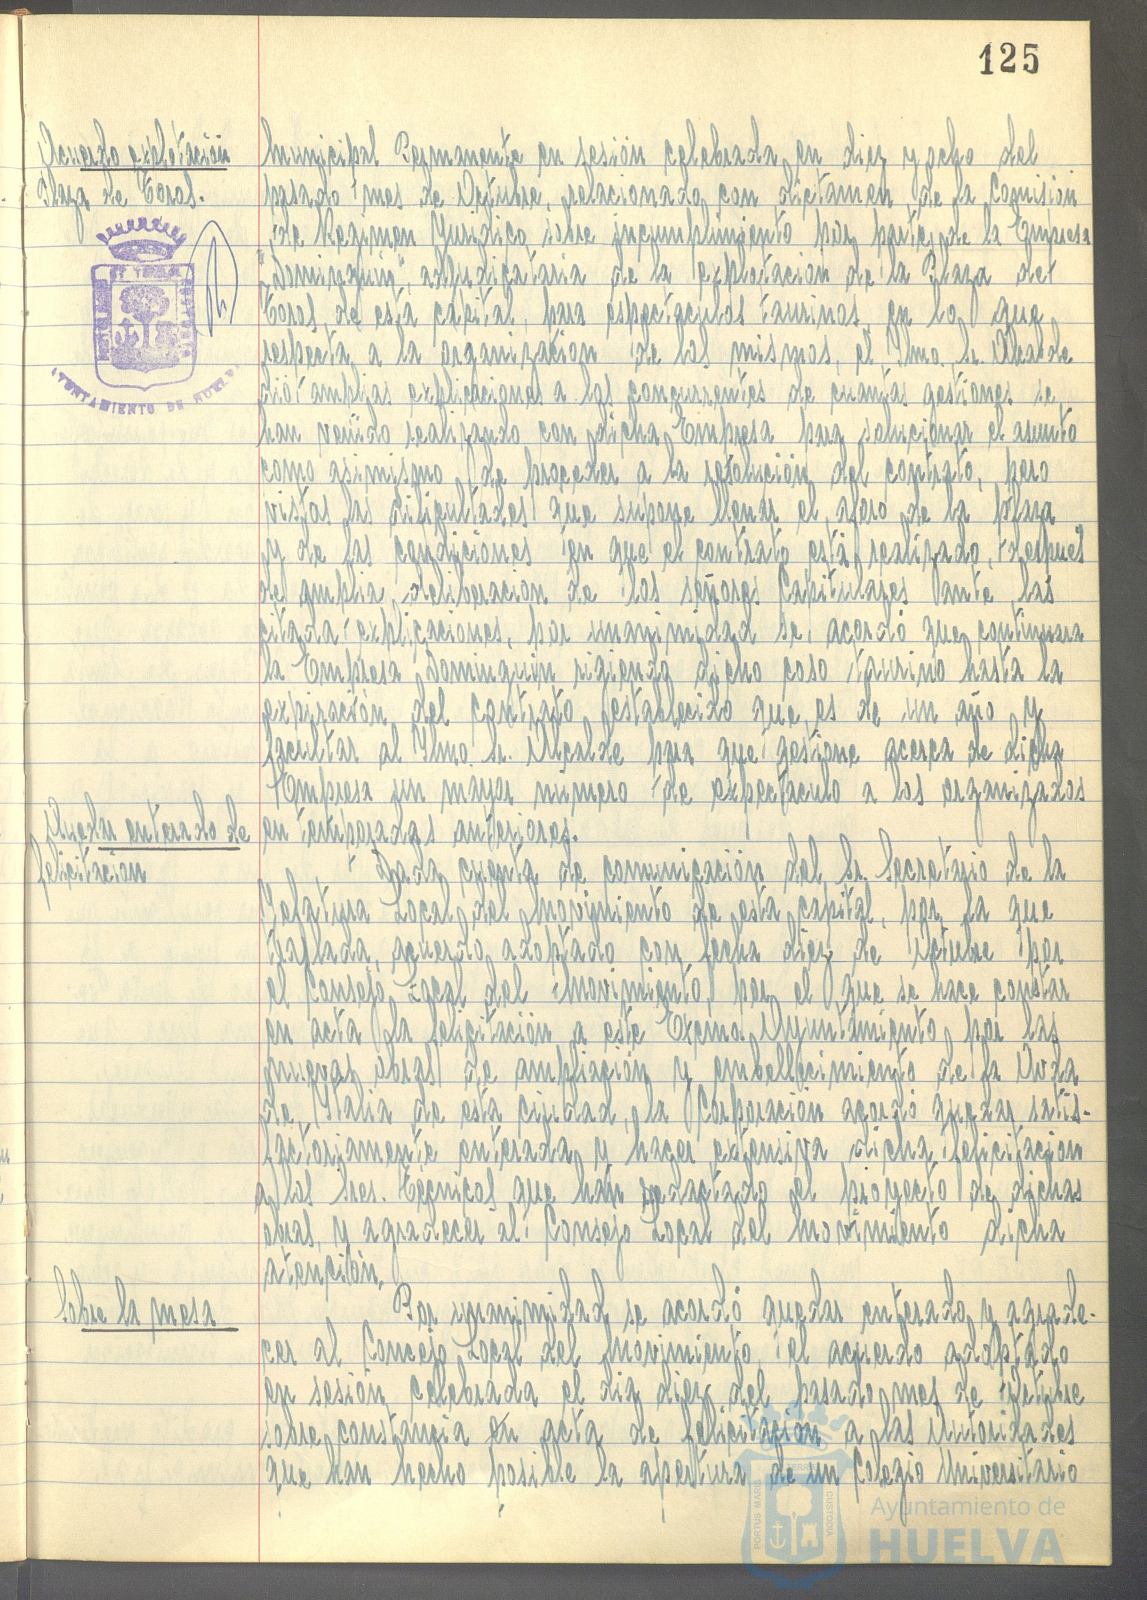 125
Acuerdo explotación
Plaza de Toros.
Municipal Permanente en sesión celebrada en diez y ocho del
pasado mes de Octubre, relacionado con dictamen de la Comisión
de Régimen Jurídico sobre incumplimiento por parte de la Empresa
"Dominguín", adjudicataria de la explotación de la Plaza de
Toros de esta capital, para espectáculos taurinos en lo que
respecta a la organización de los mismos, el Ilmo. Sr. Alcalde
dió amplias explicaciones a los concurrentes de cuantas gestiones se
han venido realizando con dicha Empresa para solucionar el asunto
como asimismo de proceder a la resolución del contrato, pero
vistas las dificultades que supone llenar el aforo de la plaza
y de las condiciones en que el contrato está realizado, después
de amplia deliberación de los señores Capitulares ante las
citada explicaciones, por unanimidad se acordó que continuara
la Empresa Dominguín rigiendo dicho coso taurino hasta la
expiración del contrato establecido que es de un año y
facultar al Ilmo. Sr. Alcalde para que gestione acerca de dicha
Empresa un mayor número de espectáculo a los organizados
en temporadas anteriores.
Quedar enterado de
felicitación
Dada cuenta de comunicación del Sr. Secretario de la
Jefatura Local del Movimiento de esta capital, por la que
traslada acuerdo adoptado con fecha diez de Octubre por
el Consejo Local del Movimiento por el que se hace constar
en acta la felicitación a este Excmo. Ayuntamiento por las
nuevas obras de ampliación y embellecimiento de la Avda
de Italia de esta ciudad, la Corporación acordó quedar satis-
factoriamente enterada y hacer extensiva dicha felicitación
a los Sres. Técnicos que han redactado el proyecto de dichas
obras, y agradecer al Consejo Local del Movimiento dicha
atención.
Sobre la mesa
Por unanimidad se acordó quedar enterado y agrade-
cer al Concejo Local del Movimiento, el acuerdo adoptado
en sesión celebrada el día diez del pasado mes de Octubre
sobre constancia en acta de felicitación a las Autoridades
que han hecho posible la apertura de un Colegio Universitario
AYUNTAMIENTO DE HUELVA
PORTUS MARIS ET TERRAE CUSTODIA
Ayuntamiento de
HUELVA